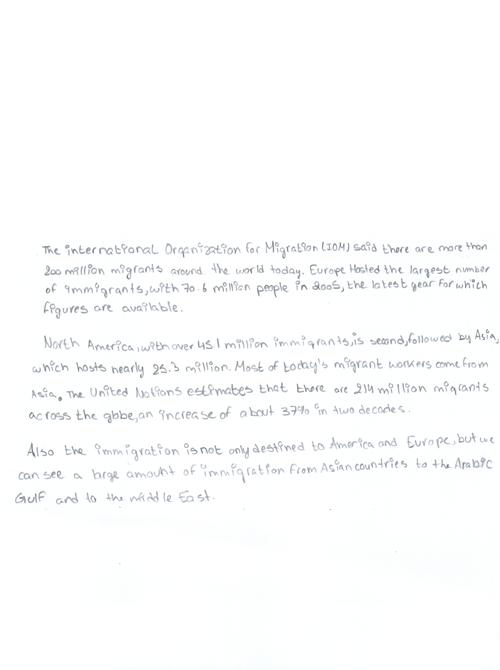 The international Organization for Migration (IOM) said there are more than
200 million migrants around the world today. Europe Hosted the largest number
of immigrants, with 70.6 million people in 2005, the latest year for which
figures are available.
North America, with over 45.1 million immigrants, is second, followed by Asia,
which hosts nearly 25.3 million. Most of today's migrant workers come from
Asia. The United Nations estimates that there are 214 million migrants
across the globe, an increase of about 37% in two decades.
Also the immigration is not only destined to America and Europe, but we
can see a large amount of immigration from Asian countries to the Arabic
Gulf and to the middle East.